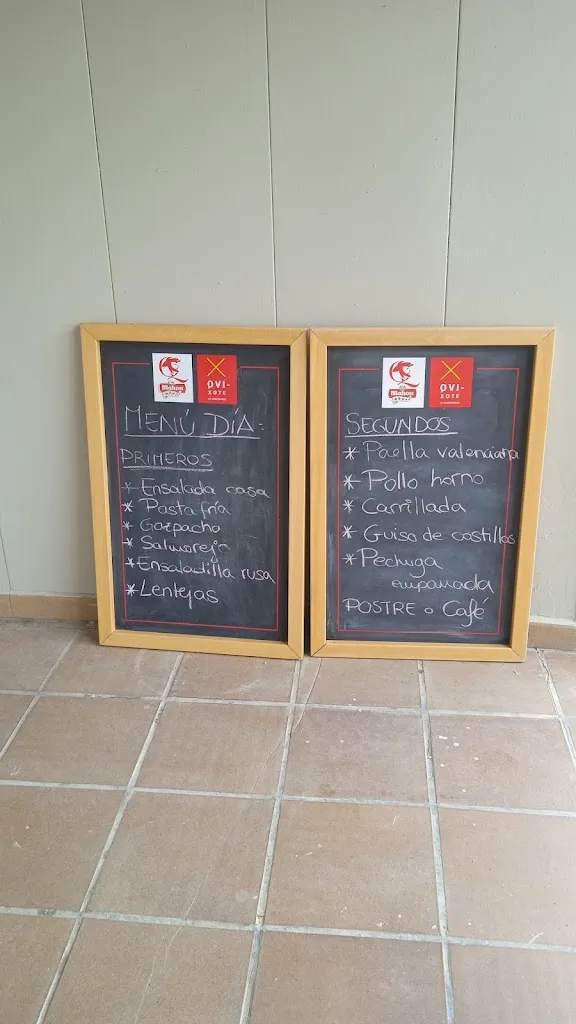 Mahou
QVI-
XOTE
MENÚ DÍA:
PRIMEROS
* Ensalada casa
* Pasta fría
* Gazpacho
* Salmorejo
* Ensaladilla rusa
* Lentejas
Mahou
QVI-
XOTE
SEGUNDOS
* Paella valenciana
* Pollo horno
* Carrillada
* Guiso de costillas
* Pechuga
empanada
POSTRE o Café